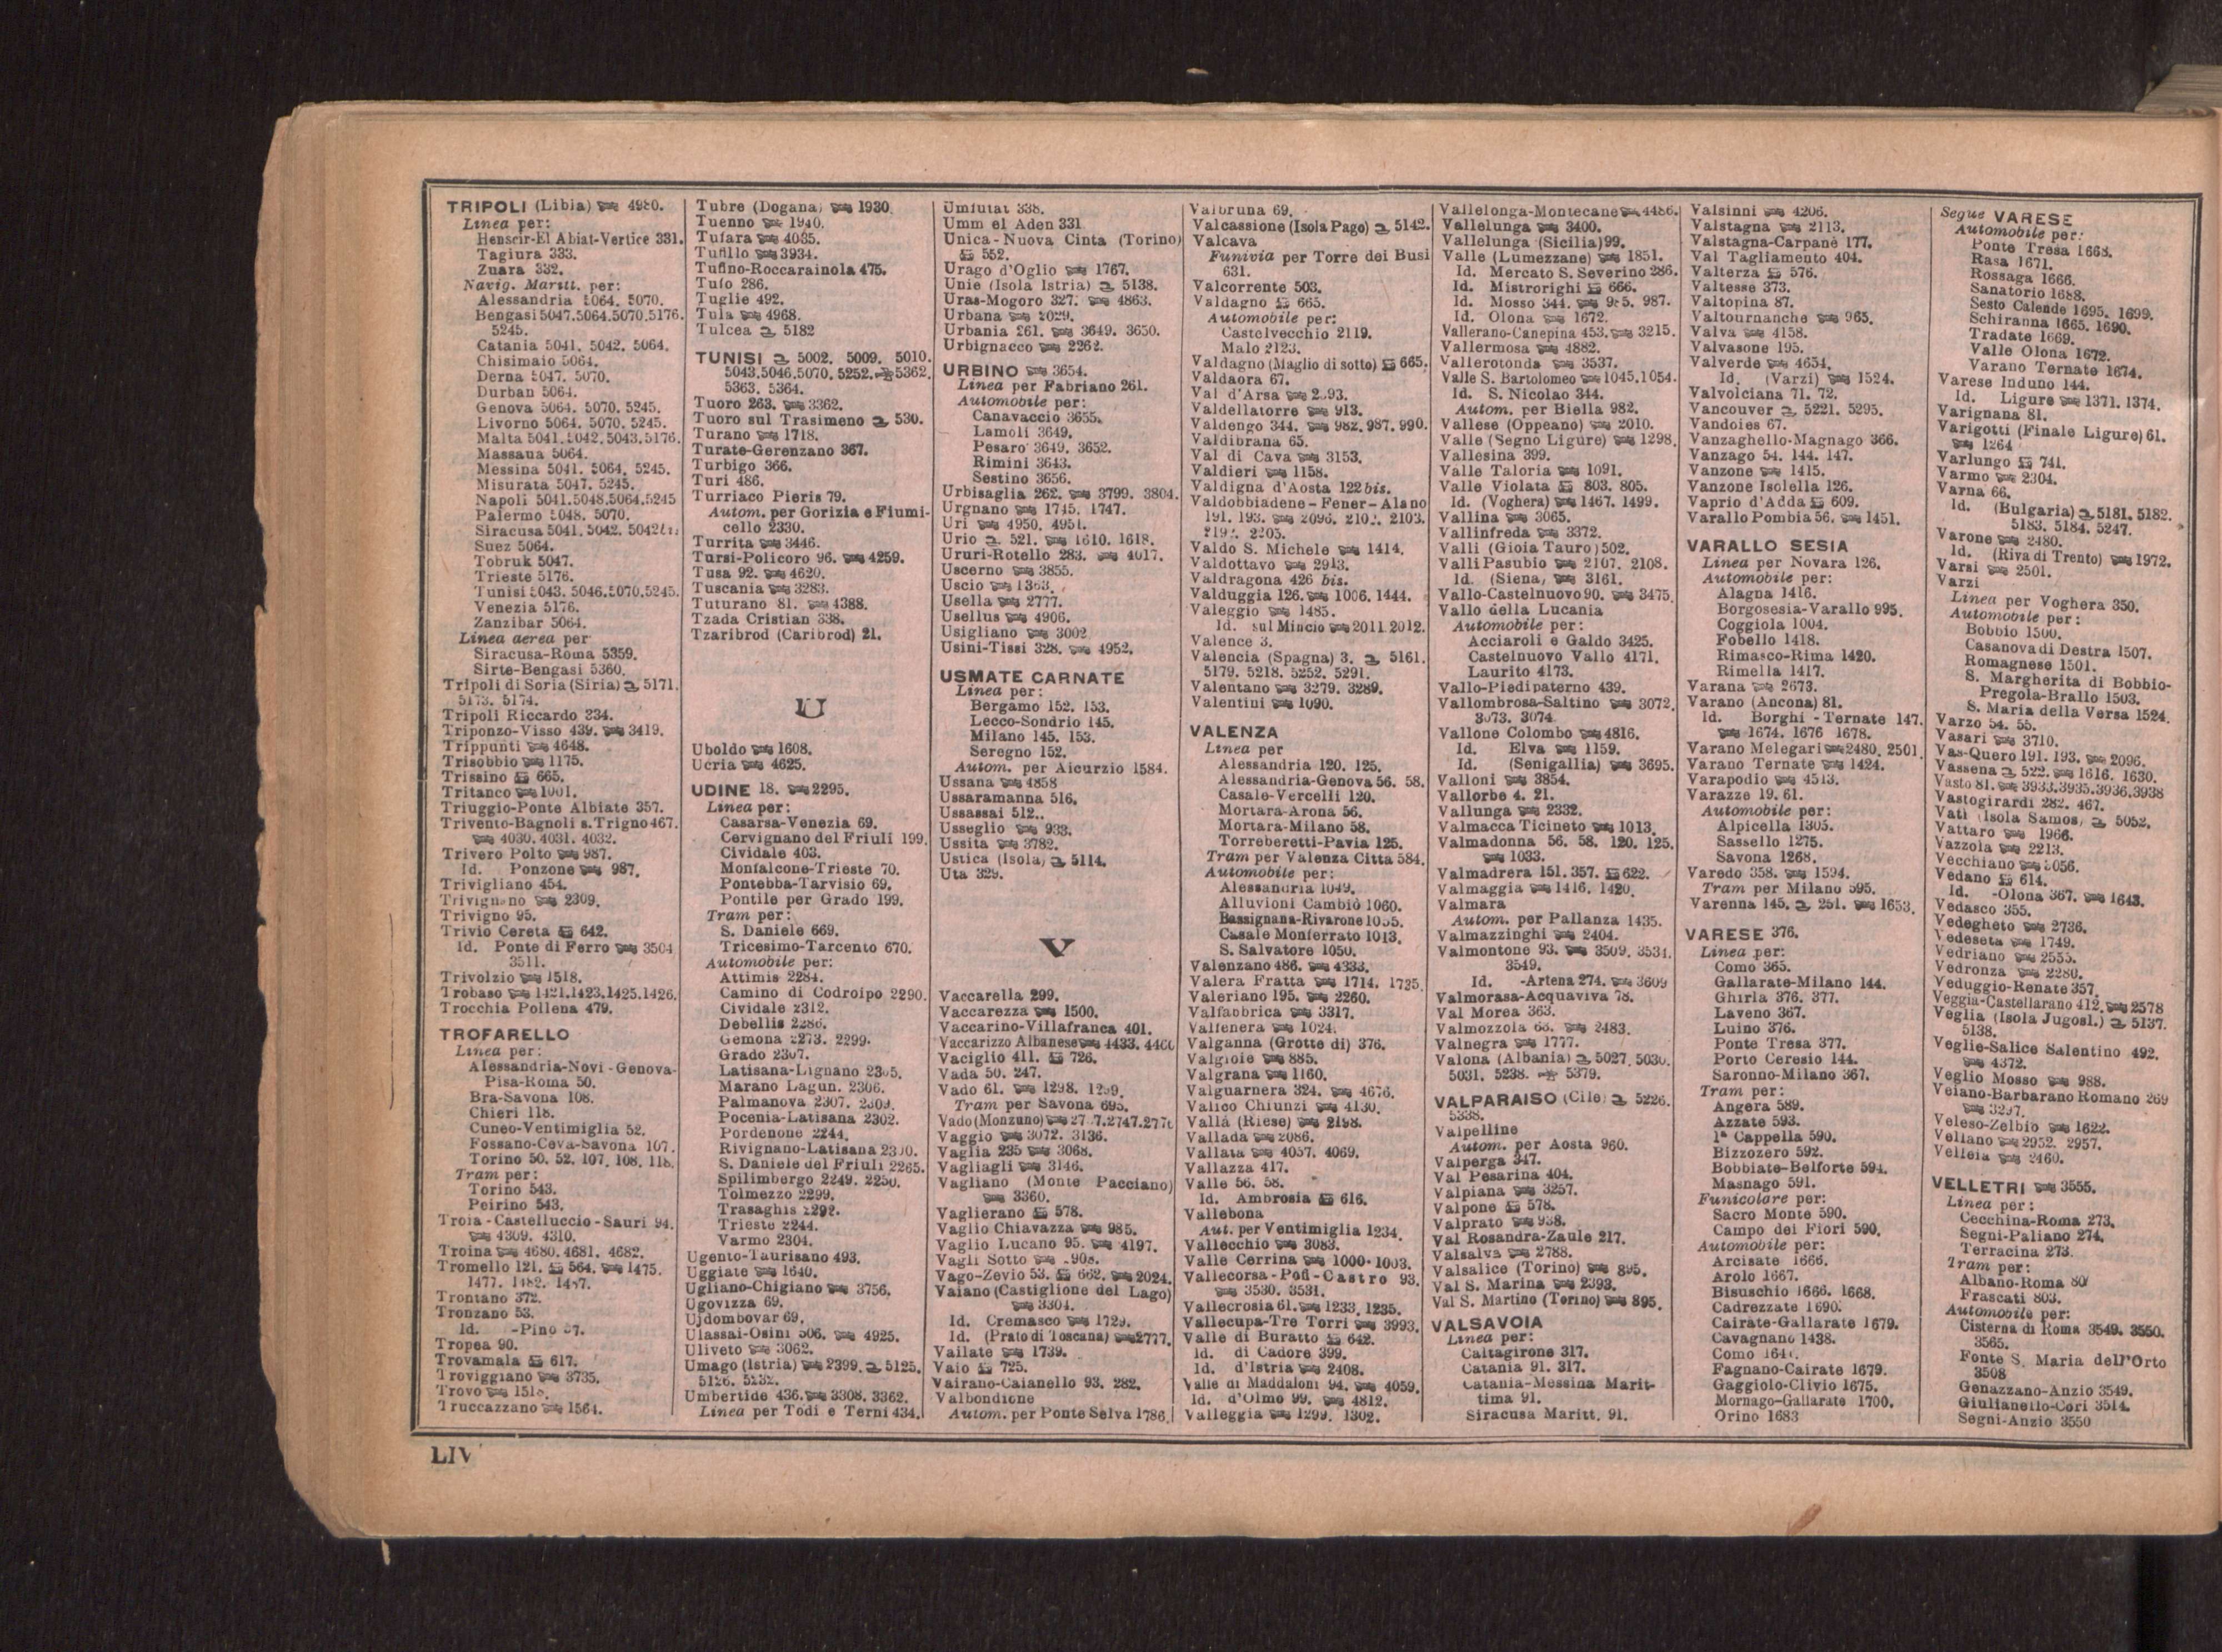 TRIPOLI (Libia) 4980.
Linea per:
Henscir-El Abiat-Vertice 331.
Tagiura 333.
Zuara 332.
Navig. Maritt. per:
Alessandria 5064. 5070.
Bengasi 5047.5064.5070.5176.
5245.
Catania 5041. 5042. 5064.
Chisimaio 5064.
Derna 5047. 5070.
Durban 5064.
Genova 5064. 5070. 5245.
Livorno 5064. 5070. 5245.
Malta 5041.5042.5043.5176.
Massaua 5064.
Messina 5041. 5064. 5245.
Misurata 5047. 5245.
Napoli 5041.5048.5064.5245
Palermo 5048. 5070.
Siracusa 5041. 5042.
Suez 5064.
Tobruk 5047.
Trieste 5176.
Tunisi 5043. 5046.5070.5245.
Venezia 5176.
Zanzibar 5064.
Linea aerea per
Siracusa-Roma 5359.
Sirte-Bengasi 5360.
Tripoli di Soria (Siria) 5171.
5173. 5174.
Tripoli Riccardo 234.
Triponzo-Visso 439. 3419.
Trippunti 4648.
Trisobbio 1175.
Trissino 665.
Tritanco 1001.
Triuggio-Ponte Albiate 357.
Trivento-Bagnoli s.Trigno 467.
4030. 4031. 4032.
Trivero Polto 987.
Id. Ponzone 987.
Trivigliano 454.
Trivignano 2309.
Trivigno 95.
Trivio Cereta 642.
Id. Ponte di Ferro 3504
3511.
Trivolzio 1518.
Trobaso 1421.1423.1425.1426.
Trocchia Pollena 479.
TROFARELLO
Linea per:
Alessandria-Novi-Genova-
Pisa-Roma 50.
Bra-Savona 108.
Chieri 118.
Cuneo-Ventimiglia 52.
Fossano-Ceva-Savona 107.
Torino 50. 52. 107. 108. 118.
Tram per:
Torino 543.
Peirino 543.
Troia-Castelluccio-Sauri 94.
4309. 4310.
Troina 4680. 4681. 4682.
Tromello 121. 564. 1475.
1477. 1482. 1487.
Trontano 372.
Tronzano 53.
Id. -Pino 57.
Tropea 90.
Trovamala 617.
Troviggiano 3735.
Trovo
Truccazzano 1564.
Tubre (Dogana) 1930.
Tuenno 1940.
Tufara 4035.
Tufillo 3934.
Tufino-Roccarainola 475.
Tufo 286.
Tuglie 492.
Tula 4968.
Tulcea 5182
TUNISI 5002. 5009. 5010.
5043.5046.5070. 5252. 5362.
5363. 5364.
Tuoro 263. 3362.
Tuoro sul Trasimeno 530.
Turano 1718.
Turate-Gerenzano 367.
Turbigo 366.
Turi 486.
Turriaco Pieris 79.
Autom. per Gorizia e Fiumi-
cello 2330.
Turrita 3446.
Tursi-Policoro 96. 4259.
Tusa 92. 4620.
Tuscania 3283.
Tuturano 81. 4388.
Tzada Cristian 338.
Tzaribrod (Caribrod) 21.
U
Uboldo 1608.
Ucria 4625.
UDINE 18. 2295.
Linea per:
Casarsa-Venezia 69.
Cervignano del Friuli 199.
Cividale 403.
Monfalcone-Trieste 70.
Pontebba-Tarvisio 69.
Pontile per Grado 199.
Tram per:
S. Daniele 669.
Tricesimo-Tarcento 670.
Automobile per:
Attimis 2284.
Camino di Codroipo 2290.
Cividale 2312.
Debellis 2286.
Gemona 2273. 2299.
Grado 2307.
Latisana-Lignano 2305.
Marano Lagun. 2306.
Palmanova 2307. 2309.
Pocenia-Latisana 2302.
Pordenone 2244.
Rivignano-Latisana 2300.
S. Daniele del Friuli 2265.
Spilimbergo 2249. 2250.
Tolmezzo 2299.
Trasaghis 2292.
Trieste 2244.
Varmo 2304.
Ugento-Taurisano 493.
Uggiate 1640.
Ugliano-Chigiano 3756.
Ugovizza 69.
Ujdombovar 69.
Ulassai-Osini 506. 4925.
Uliveto 3062.
Umago (Istria) 2399. 5125.
5126. 5232.
Umbertide 436. 3308. 3362.
Linea per Todi e Terni 434.
Umfutat 338.
Umm el Aden 331
Unica-Nuova Cinta (Torino)
552.
Urago d'Oglio 1767.
Unie (Isola Istria) 5138.
Uras-Mogoro 327. 4863.
Urbana 2029.
Urbania 261. 3649. 3650.
Urbignacco 2262.
URBINO 3654.
Linea per Fabriano 261.
Automobile per:
Canavaccio 3655.
Lamoli 3649.
Pesaro 3649. 3652.
Rimini 3643.
Sestino 3656.
Urbisaglia 262. 3799. 3804.
Urgnano 1745. 1747.
Uri 4950. 4951.
Urio 521. 1610. 1618.
Ururi-Rotello 283. 4017.
Uscerno 3855.
Uscio 1363.
Usella 2777.
Usellus 4906.
Usigliano 3002
Usini-Tissi 328. 4952.
USMATE CARNATE
Linea per:
Bergamo 152. 153.
Lecco-Sondrio 145.
Milano 145. 153.
Seregno 152.
Autom. per Aicurzio 1584.
Ussana 4858
Ussaramanna 516.
Ussassai 512..
Usseglio 933.
Ussita 3782.
Ustica (Isola) 5114.
Uta 329.
V
Vaccarella 299.
Vaccarezza 1500.
Vaccarino-Villafranca 401.
Vaccarizzo Albanese 4433.
Vaciglio 411. 726.
Vada 50. 247.
Vado 61. 1298. 1299.
Tram per Savona 695.
Vado (Monzuno)
Vaggio 3072. 3136.
Vaglia 235 3068.
Vagliagli 3146.
Vagliano (Monte Pacciano)
3360.
Vaglierano 578.
Vaglio Chiavazza 985.
Vaglio Lucano 95. 4197.
Vagli Sotto
Vago-Zevio 53. 662. 2024.
Vaiano (Castiglione del Lago)
3304.
Id. Cremasco 1729.
Id. (Prato di Toscana) 2777.
Vailate 1739.
Vaio 725.
Vairano-Caianello 93. 282.
Valbondione
Autom. per Ponte Selva 1786.
Valbruna 69.
Valcassione (Isola Pago) 5142.
Valcava
Funivia per Torre dei Busi
631.
Valcorrente 503.
Valdagno 665.
Automobile per:
Castelvecchio 2119.
Malo 2123.
Valdagno (Maglio di sotto) 665.
Valdaora 67.
Val d'Arsa
Valdellatorre 913.
Valdengo 344. 982. 987. 990.
Valdibrana 65.
Val di Cava 3153.
Valdieri 1158.
Valdigna d'Aosta 122 bis.
Valdobbiadene-Fener-Alano
191. 193. 2096. 2102. 2103.
2192. 2205.
Valdo S. Michele 1414.
Valdottavo 2913.
Valdragona 426 bis.
Valduggia 126. 1006. 1444.
Valeggio 1485.
Id. sul Mincio 2011.2012.
Valence 3.
Valencia (Spagna) 3. 5161.
5179. 5218. 5252. 5291.
Valentano 3279. 3289.
Valentini 1090.
VALENZA
Linea per
Alessandria 120. 125.
Alessandria-Genova 56. 58.
Casale-Vercelli 120.
Mortara-Arona 56.
Mortara-Milano 58.
Torreberetti-Pavia 125.
Tram per Valenza Città 584.
Automobile per:
Alessandria 1049.
Alluvioni Cambiò 1060.
Bassignana-Rivarone 1055.
Casale Monferrato 1013.
S. Salvatore 1050.
Valenzano 486. 4333.
Valera Fratta 1714. 1725.
Valeriano 195. 2260.
Valfabbrica 3317.
Valfenera 1024.
Valganna (Grotte di) 376.
Valgioie 885.
Valgrana 1160.
Valguarnera 324. 4676.
Valico Chiunzi 4130.
Vallà (Riese) 2198.
Vallada 2086.
Vallata 4057. 4069.
Vallazza 417.
Valle 56. 58.
Id. Ambrosia 616.
Vallebona
Aut. per Ventimiglia 1234.
Vallecchio 3083.
Valle Cerrina 1000-1003.
Vallecorsa-Pofi-Castro 93.
3530. 3531.
Vallecrosia 61. 1233. 1235.
Vallecupa-Tre Torri 3993.
Valle di Buratto 642.
Id. di Cadore 399.
Id. d'Istria 2408.
Valle di Maddaloni 94. 4059.
Id. d'Olmo 99. 4812.
Valleggia 1299. 1302.
Vallelonga-Montecane 4486.
Vallelunga 3400.
Vallelunga (Sicilia) 99.
Valle (Lumezzane) 1851.
Id. Mercato S. Severino 286.
Id. Mistrorighi 666.
Id. Mosso 344. 985. 987.
Id. Olona 1672.
Vallerano-Canepina 453. 3215.
Vallermosa 4882.
Vallerotonda 3537.
Valle S. Bartolomeo 1045.1054.
Id. S. Nicolao 344.
Autom. per Biella 982.
Vallese (Oppeano) 2010.
Valle (Segno Ligure) 1298.
Vallesina 399.
Valle Taloria 1091.
Valle Violata 803. 805.
Id. (Voghera) 1467. 1499.
Vallina 3065.
Vallinfreda 3372.
Valli (Gioia Tauro) 502.
Valli Pasubio 2107. 2108.
Id. (Siena) 3161.
Vallo-Castelnuovo 90. 3475.
Vallo della Lucania
Automobile per:
Acciaroli e Galdo 3425.
Castelnuovo Vallo 4171.
Laurito 4173.
Vallo-Piedipaterno 439.
Vallombrosa-Saltino 3072.
3073. 3074.
Vallone Colombo 4816.
Id. Elva 1159.
Id. (Senigallia) 3695.
Valloni 3854.
Vallorbe 4. 21.
Vallunga 2332.
Valmacca Ticineto 1013.
Valmadonna 56. 58. 120. 125.
1033.
Valmadrera 151. 357. 622.
Valmaggia 1416. 1420.
Valmara
Autom. per Pallanza 1435.
Valmazzinghi 2404.
Valmontone 93. 3509. 3534.
3549.
Id. -Artena 274. 3609
Valmorasa-Acquaviva 78.
Val Morea 363.
Valmozzola 65. 2483.
Valnegra 1777.
Valona (Albania) 5027. 5030.
5031. 5238. 5379.
VALPARAISO (Cile) 5226.
5338.
Valpelline
Autom. per Aosta 960.
Valperga 347.
Val Pesarina 404.
Valpiana 3257.
Valpone 578.
Valprato 938.
Val Rosandra-Zaule 217.
Valsalva 2788.
Valsalice (Torino) 895.
Val S. Marina 2393.
Val S. Martino (Torino) 895.
VALSAVOIA
Linea per:
Caltagirone 317.
Catania 91. 317.
Catania-Messina Marit-
tima 91.
Siracusa Maritt. 91.
Valsinni 4206.
Valstagna 2113.
Valstagna-Carpanè 177.
Val Tagliamento 404.
Valterza 576.
Valtesse 373.
Valtopina 87.
Valtournanche 965.
Valva 4158.
Valvasone 195.
Valverde 4654.
Id. (Varzi) 1524.
Valvolciana 71. 72.
Vancouver 5221. 5295.
Vandoies 67.
Vanzaghello-Magnago 366.
Vanzago 54. 144. 147.
Vanzone 1415.
Vanzone Isolella 126.
Vaprio d'Adda 609.
Varallo Pombia 56. 1451.
VARALLO SESIA
Linea per Novara 126.
Automobile per:
Alagna 1416.
Borgosesia-Varallo 995.
Coggiola 1004.
Fobello 1418.
Rimasco-Rima 1420.
Rimella 1417.
Varana 2673.
Varano (Ancona) 81.
Id. Borghi-Ternate 147.
1674. 1676 1678.
Varano Melegari 2480. 2501.
Varano Ternate 1424.
Varapodio 4513.
Varazze 19. 61.
Automobile per:
Alpicella 1305.
Sassello 1275.
Savona 1268.
Varedo 358. 1594.
Tram per Milano 595.
Varenna 145. 251. 1653.
VARESE 376.
Linea per:
Como 365.
Gallarate-Milano 144.
Ghirla 376. 377.
Laveno 367.
Luino 376.
Ponte Tresa 377.
Porto Ceresio 144.
Saronno-Milano 367.
Tram per:
Angera 589.
Azzate 593.
1ª Cappella 590.
Bizzozero 592.
Bobbiate-Belforte 594.
Masnago 591.
Funicolare per:
Sacro Monte 590.
Campo dei Fiori 590.
Automobile per:
Arcisate 1666.
Arolo 1667.
Bisuschio 1666. 1668.
Cadrezzate 1690.
Cairate-Gallarate 1679.
Cavagnano 1438.
Como
Fagnano-Cairate 1679.
Gaggiolo-Clivio 1675.
Mornago-Gallarate 1700.
Orino 1683
Segue VARESE
Automobile per:
Ponte Tresa 1668.
Rasa 1671.
Rossaga 1666.
Sanatorio 1688.
Sesto Calende 1695. 1699.
Schiranna 1665. 1690.
Tradate 1669.
Valle Olona 1672.
Varano Ternate 1674.
Varese Induno 144.
Id. Ligure 1371. 1374.
Varignana 81.
Varigotti (Finale Ligure) 61.
1264
Varlungo 741.
Varmo 2304.
Varna 66.
Id. (Bulgaria) 5181. 5182.
5183. 5184. 5247.
Varone 2480.
Id. (Riva di Trento) 1972.
Varsi 2501.
Varzi
Linea per Voghera 350.
Automobile per:
Bobbio 1500.
Casanova di Destra 1507.
Romagnese 1501.
S. Margherita di Bobbio-
Pregola-Brallo 1503.
S. Maria della Versa 1524.
Varzo 54. 55.
Vasari 3710.
Vas-Quero 191. 193. 2096.
Vassena 522. 1616. 1630.
Vasto 81. 3933.3935.3936.3938
Vastogirardi 282. 467.
Vati (Isola Samos) 5052.
Vattaro 1966.
Vazzola 2213.
Vecchiano 3056.
Vedano 614.
Id. -Olona 367. 1643.
Vedasco 355.
Vedegheto 2736.
Vedeseta 1749.
Vedriano 2555.
Vedronza 2280.
Veduggio-Renate 357.
Veggia-Castellarano 412. 2578
Veglia (Isola Jugosl.) 5137.
5138.
Veglie-Salice Salentino 492.
4372.
Veglio Mosso 988.
Veiano-Barbarano Romano 269
3297.
Veleso-Zelbio 1622.
Vellano 2952. 2957.
Velleia 2460.
VELLETRI 3555.
Linea per:
Cecchina-Roma 273.
Segni-Paliano 274.
Terracina 273.
Tram per:
Albano-Roma 80
Frascati 803.
Automobile per:
Cisterna di Roma 3549. 3550.
3565.
Fonte S. Maria dell'Orto
3508
Genazzano-Anzio 3549.
Giulianello-Cori 3514.
Segni-Anzio 3550
LIV